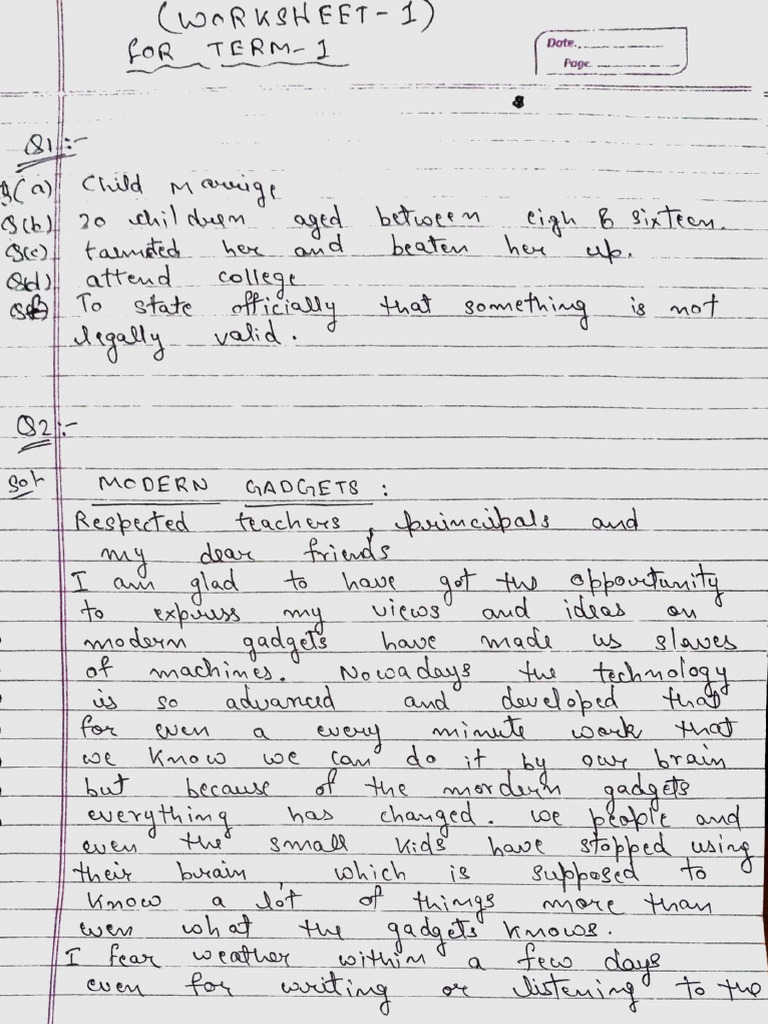 (WORKSHEET-1)
FOR TERM-1
Date.
Page
Q1:-
(a) Child Marrige
Q(b) 20 children aged between eigh & sixteen.
Q(c) taunted her and beaten her up.
Q(d) attend college
To state officially that something is not
legally valid.
Q2:-
Sol MODERN GADGETS:
Respected teachers, principals and
my dear friends
I am glad to have got the opportunity
to express my views and ideas on
modern gadgets have made us slaves
of machines. Nowadays the technology
is so advanced and developed that
for even a every minute work that
we know we can do it by our brain
but because of the mordern gadgets
everything has changed. We people and
even the small kids have stopped using
their brain, which is supposed to
know a lot of things more than
even what the gadgets knows.
I fear weather within a few days
even for writing or listening to the